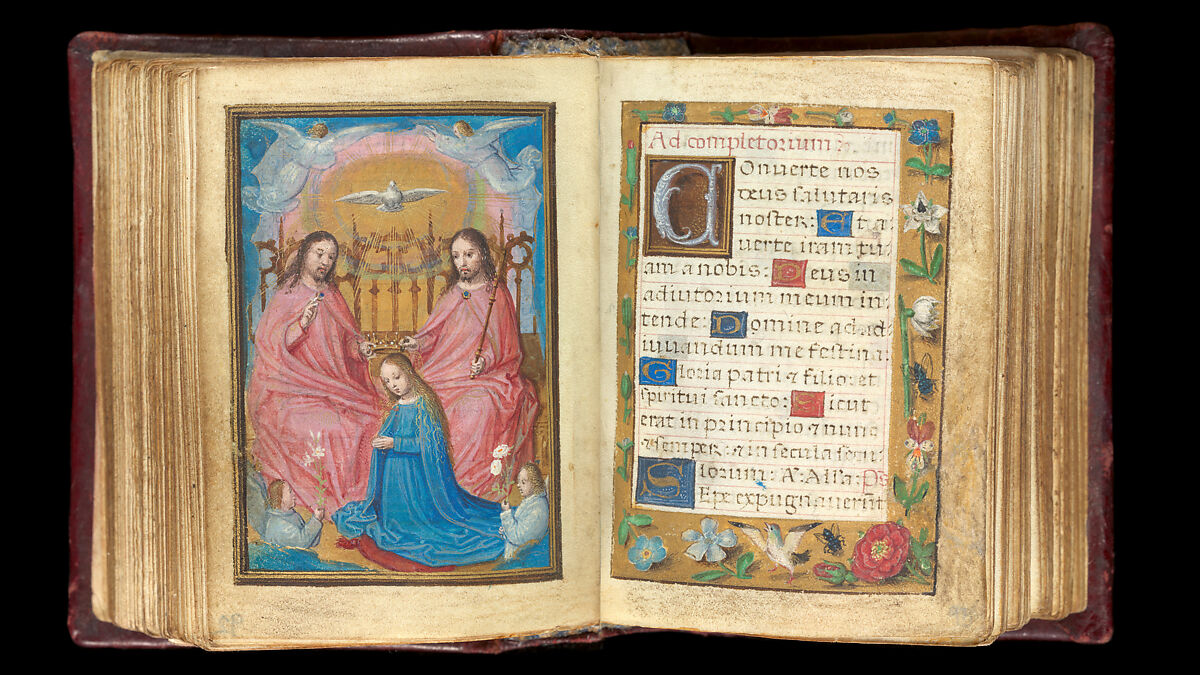 Ad completorium
Converte nos
deus salutaris
noster: Et a
verte iram tu
am a nobis: Deus in
adiutorium meum in
tende: Domine ad ad
iuvandum me festina:
Gloria patri & filio: et
spiritui sancto: Sicut
erat in principio & nunc
& semper: & in secula secu
lorum: A: Alla: Ps
Sepe expugnaverunt